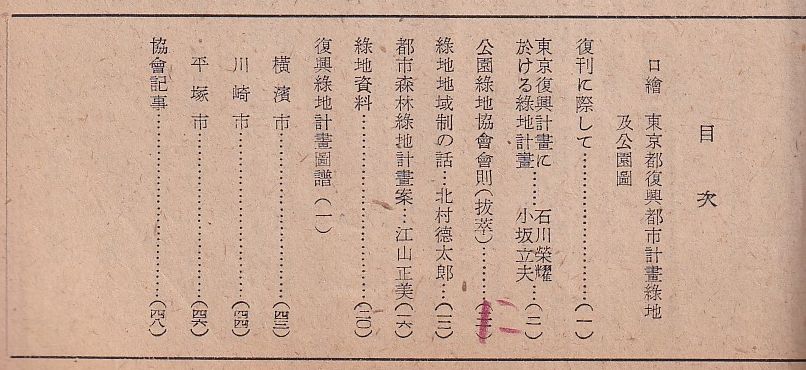 目次
口繪 東京都復興都市計畫綠地
及公園圖
復刊に際して…………………(一)
東京復興計畫に
於ける綠地計畫……石川榮耀 小坂立夫…(二)
公園綠地協會會則(拔萃)………
綠地地域制の話…北村德太郎…(一二)
都市森林綠地計畫案…江山正美(一六)
綠地資料…………………………(二〇)
復興綠地計畫圖譜(一)
橫濱市…………………(四三)
川崎市…………………(四四)
平塚市…………………(四六)
協會記事…………………………(四八)